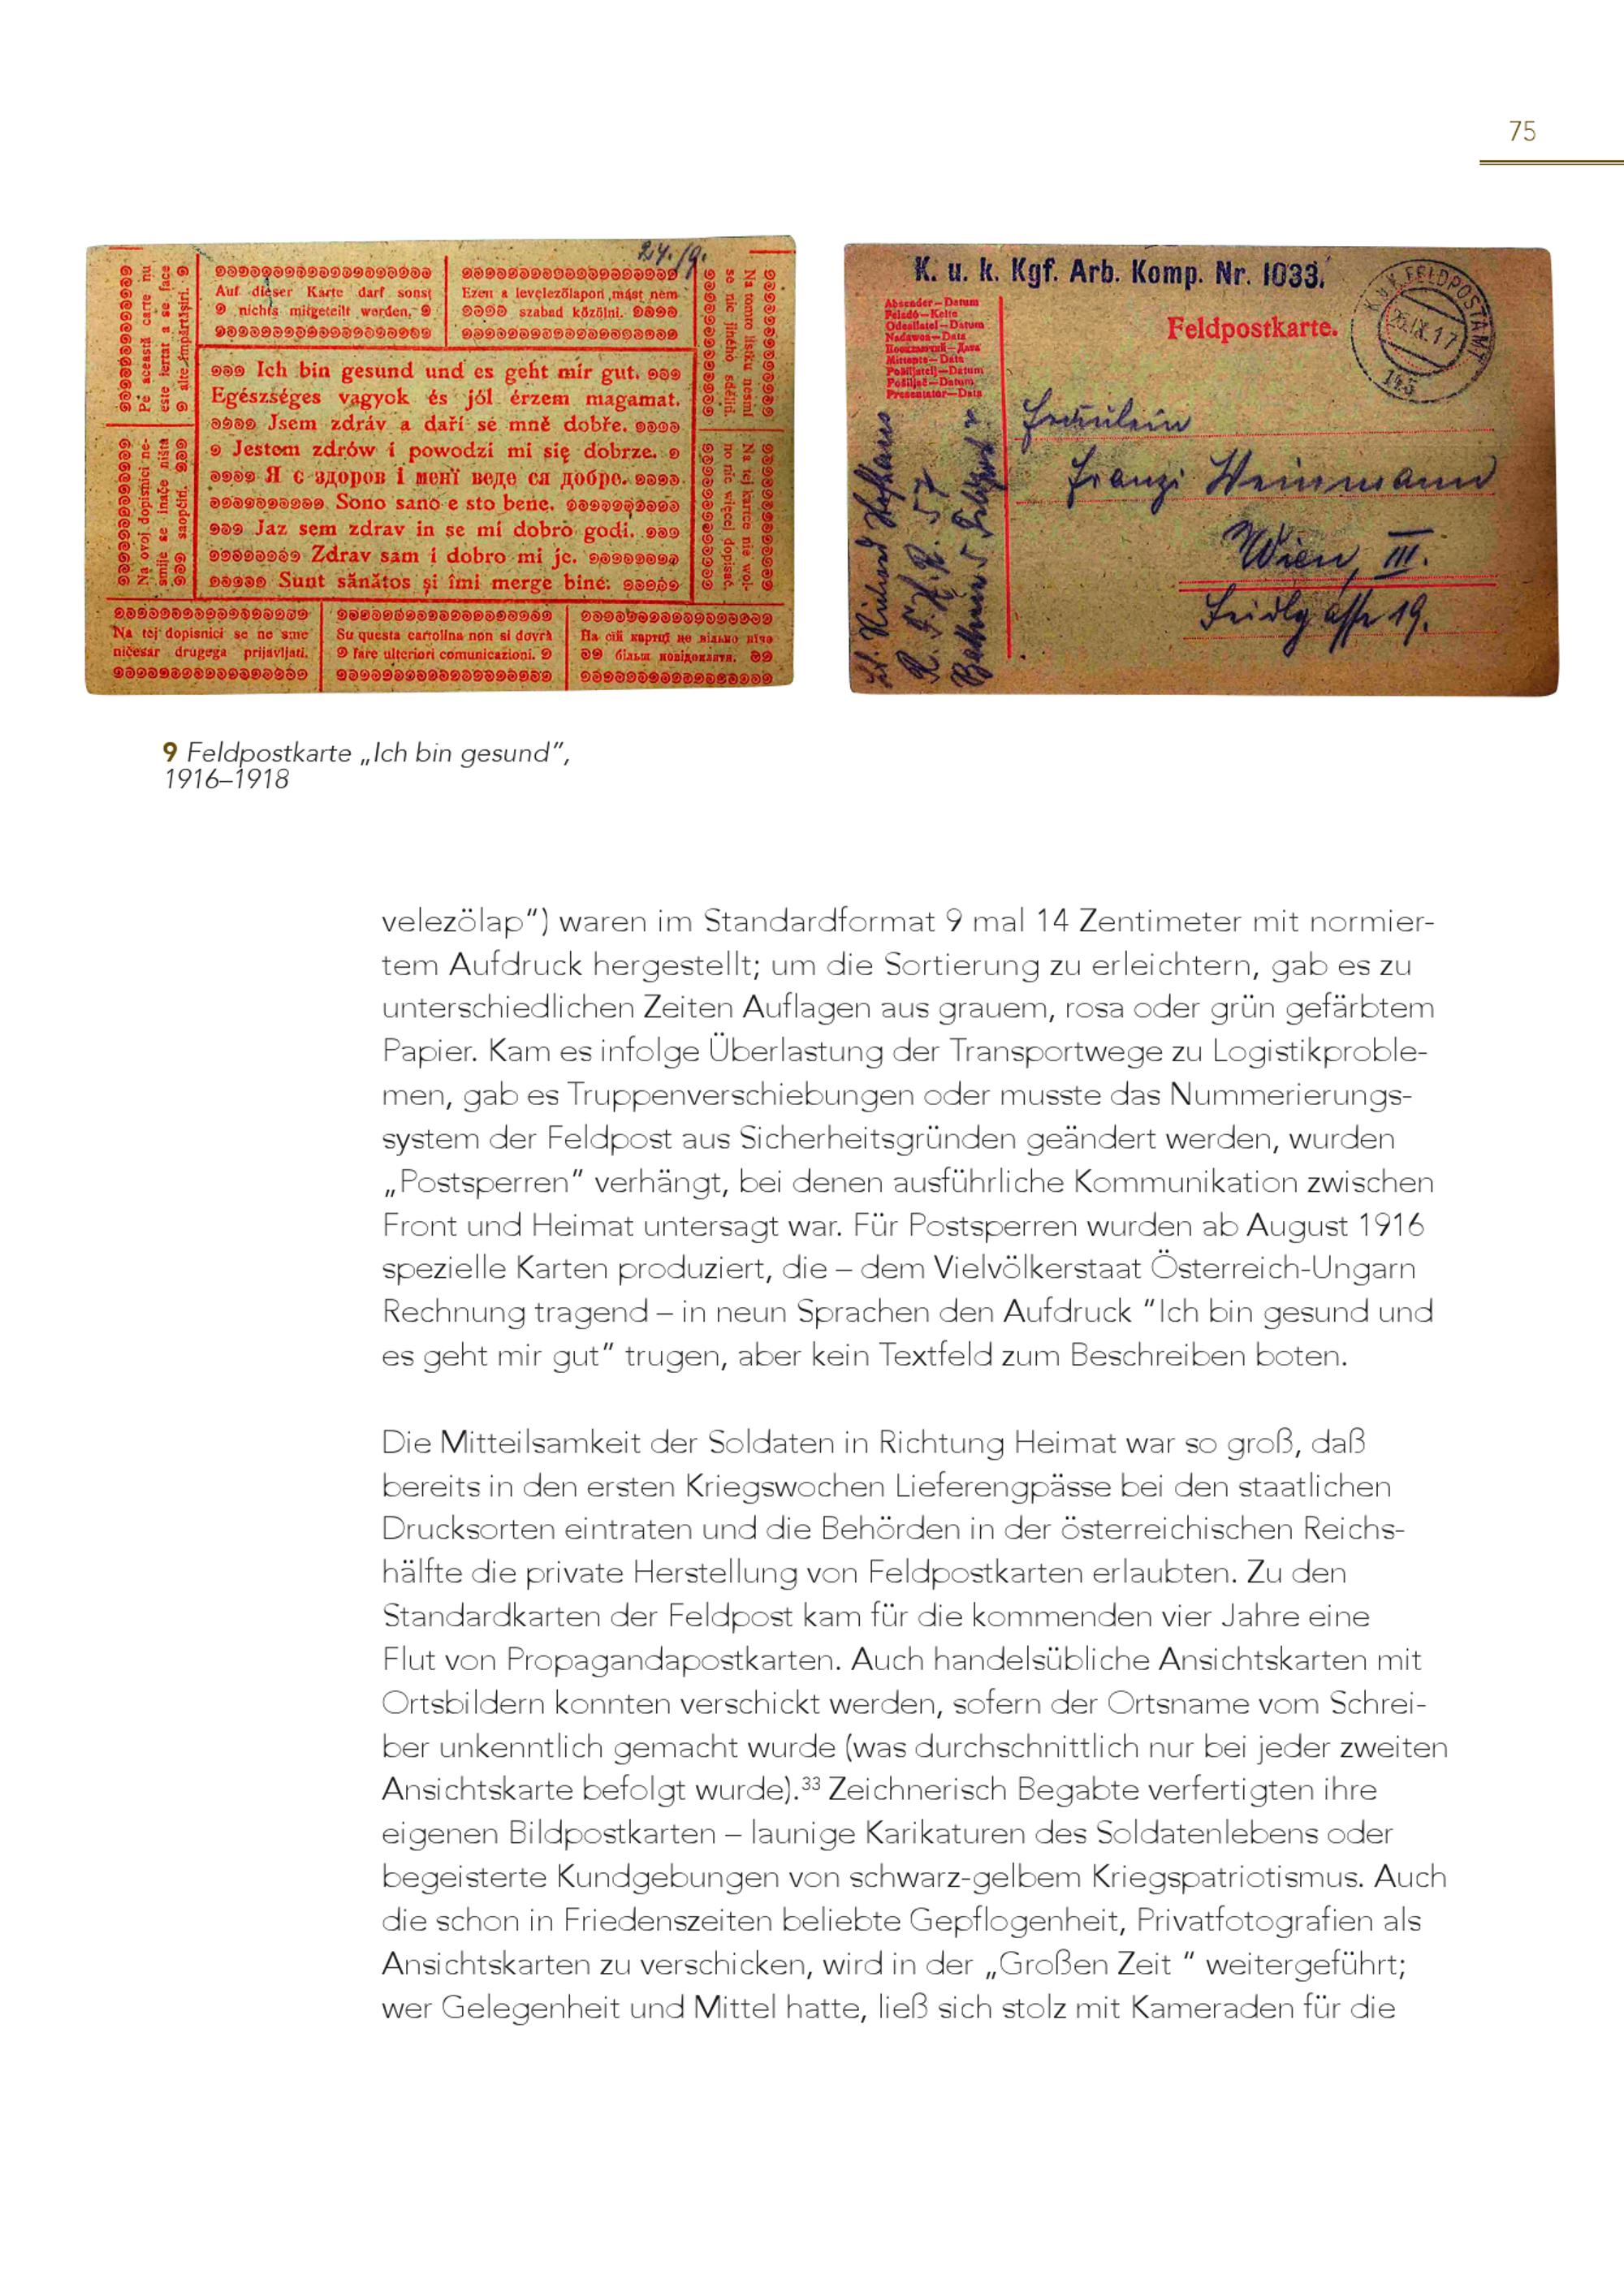 75
24./9.
Auf dieser Karte darf sonst
nichts mitgeteilt werden.
Ezen a levelezőlapon mást nem
szabad közölni.
Pe această carte nu
este iertat a se face
alte împărtășiri.
Na ovoj dopisnici ne-
smije se inače ništa
saopćiti.
Na tomto lístku nesmí
se nic jiného sděliti.
Na tej kartce nie wol-
no nic więcej dopisać.
Ich bin gesund und es geht mir gut.
Egészséges vagyok és jól érzem magamat.
Jsem zdráv a daří se mně dobře.
Jestem zdrów i powodzi mi się dobrze.
Я є здоров і менї веде ся добре.
Sono sano e sto bene.
Jaz sem zdrav in se mi dobro godi.
Zdrav sam i dobro mi je.
Sunt sănătos și îmi merge bine.
Na tej dopisnici se ne sme
ničesar drugega prijavljati.
Su questa cartolina non si dovrà
fare ulteriori comunicazioni.
На сїй картцї не вільно нічо
більш повідомляти.
K. u. k. Kgf. Arb. Komp. Nr. 1033.
Absender—Datum
Feladó—Kelte
Odesílatel—Datum
Nadawca—Data
Mittente—Data
Pošiljatelj—Datum
Pošiljač—Datum
Feldpostkarte.
K.u.K. FELDPOSTAMT
25.IX.17
145
Fräulein
Franzi Weinmann
Wien, III.
Seidlgasse 19.
9 Feldpostkarte „Ich bin gesund”,
1916–1918
velezölap“) waren im Standardformat 9 mal 14 Zentimeter mit normier-
tem Aufdruck hergestellt; um die Sortierung zu erleichtern, gab es zu
unterschiedlichen Zeiten Auflagen aus grauem, rosa oder grün gefärbtem
Papier. Kam es infolge Überlastung der Transportwege zu Logistikproble-
men, gab es Truppenverschiebungen oder musste das Nummerierungs-
system der Feldpost aus Sicherheitsgründen geändert werden, wurden
„Postsperren” verhängt, bei denen ausführliche Kommunikation zwischen
Front und Heimat untersagt war. Für Postsperren wurden ab August 1916
spezielle Karten produziert, die – dem Vielvölkerstaat Österreich-Ungarn
Rechnung tragend – in neun Sprachen den Aufdruck “Ich bin gesund und
es geht mir gut” trugen, aber kein Textfeld zum Beschreiben boten.
Die Mitteilsamkeit der Soldaten in Richtung Heimat war so groß, daß
bereits in den ersten Kriegswochen Lieferengpässe bei den staatlichen
Drucksorten eintraten und die Behörden in der österreichischen Reichs-
hälfte die private Herstellung von Feldpostkarten erlaubten. Zu den
Standardkarten der Feldpost kam für die kommenden vier Jahre eine
Flut von Propagandapostkarten. Auch handelsübliche Ansichtskarten mit
Ortsbildern konnten verschickt werden, sofern der Ortsname vom Schrei-
ber unkenntlich gemacht wurde (was durchschnittlich nur bei jeder zweiten
Ansichtskarte befolgt wurde).³³ Zeichnerisch Begabte verfertigten ihre
eigenen Bildpostkarten – launige Karikaturen des Soldatenlebens oder
begeisterte Kundgebungen von schwarz-gelbem Kriegspatriotismus. Auch
die schon in Friedenszeiten beliebte Gepflogenheit, Privatfotografien als
Ansichtskarten zu verschicken, wird in der „Großen Zeit “ weitergeführt;
wer Gelegenheit und Mittel hatte, ließ sich stolz mit Kameraden für die